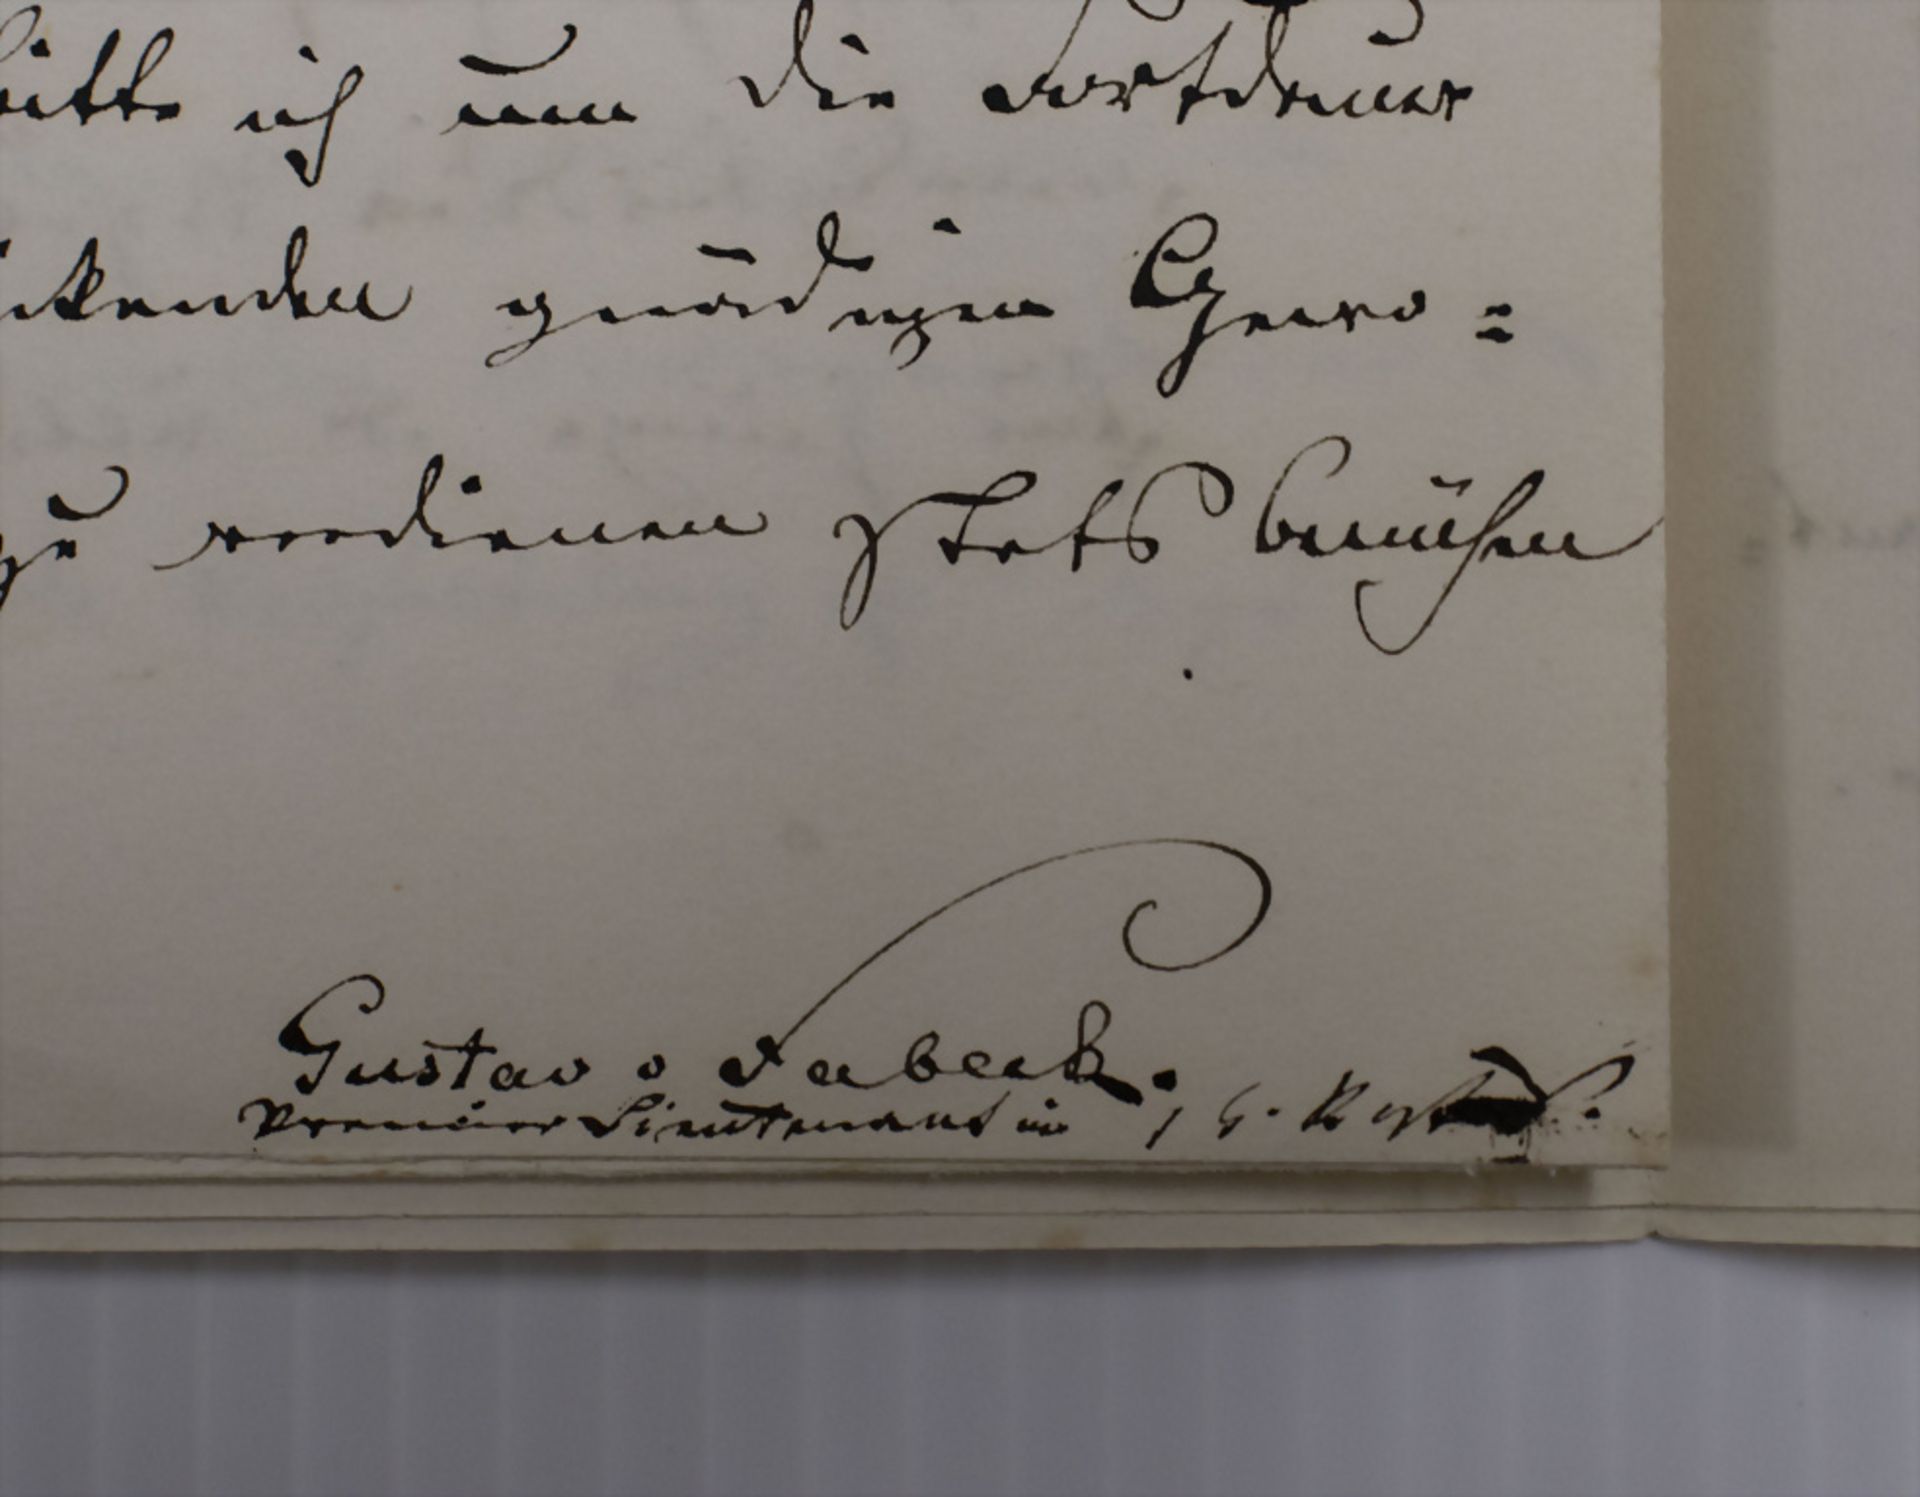 bitte ich um die Fortdauer
ckenden gnädigen Gewo=
zu verdienen stets bemühen
.
Gustav v Fabeck.
Premier Lieutenant im